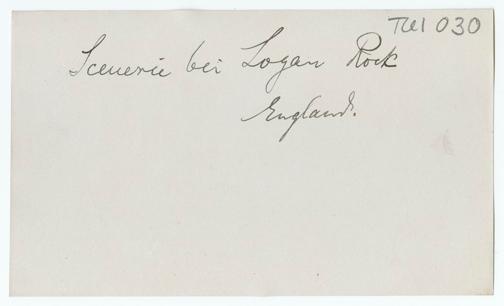 TW1 030
Scenerie bei Logan Rock
England.